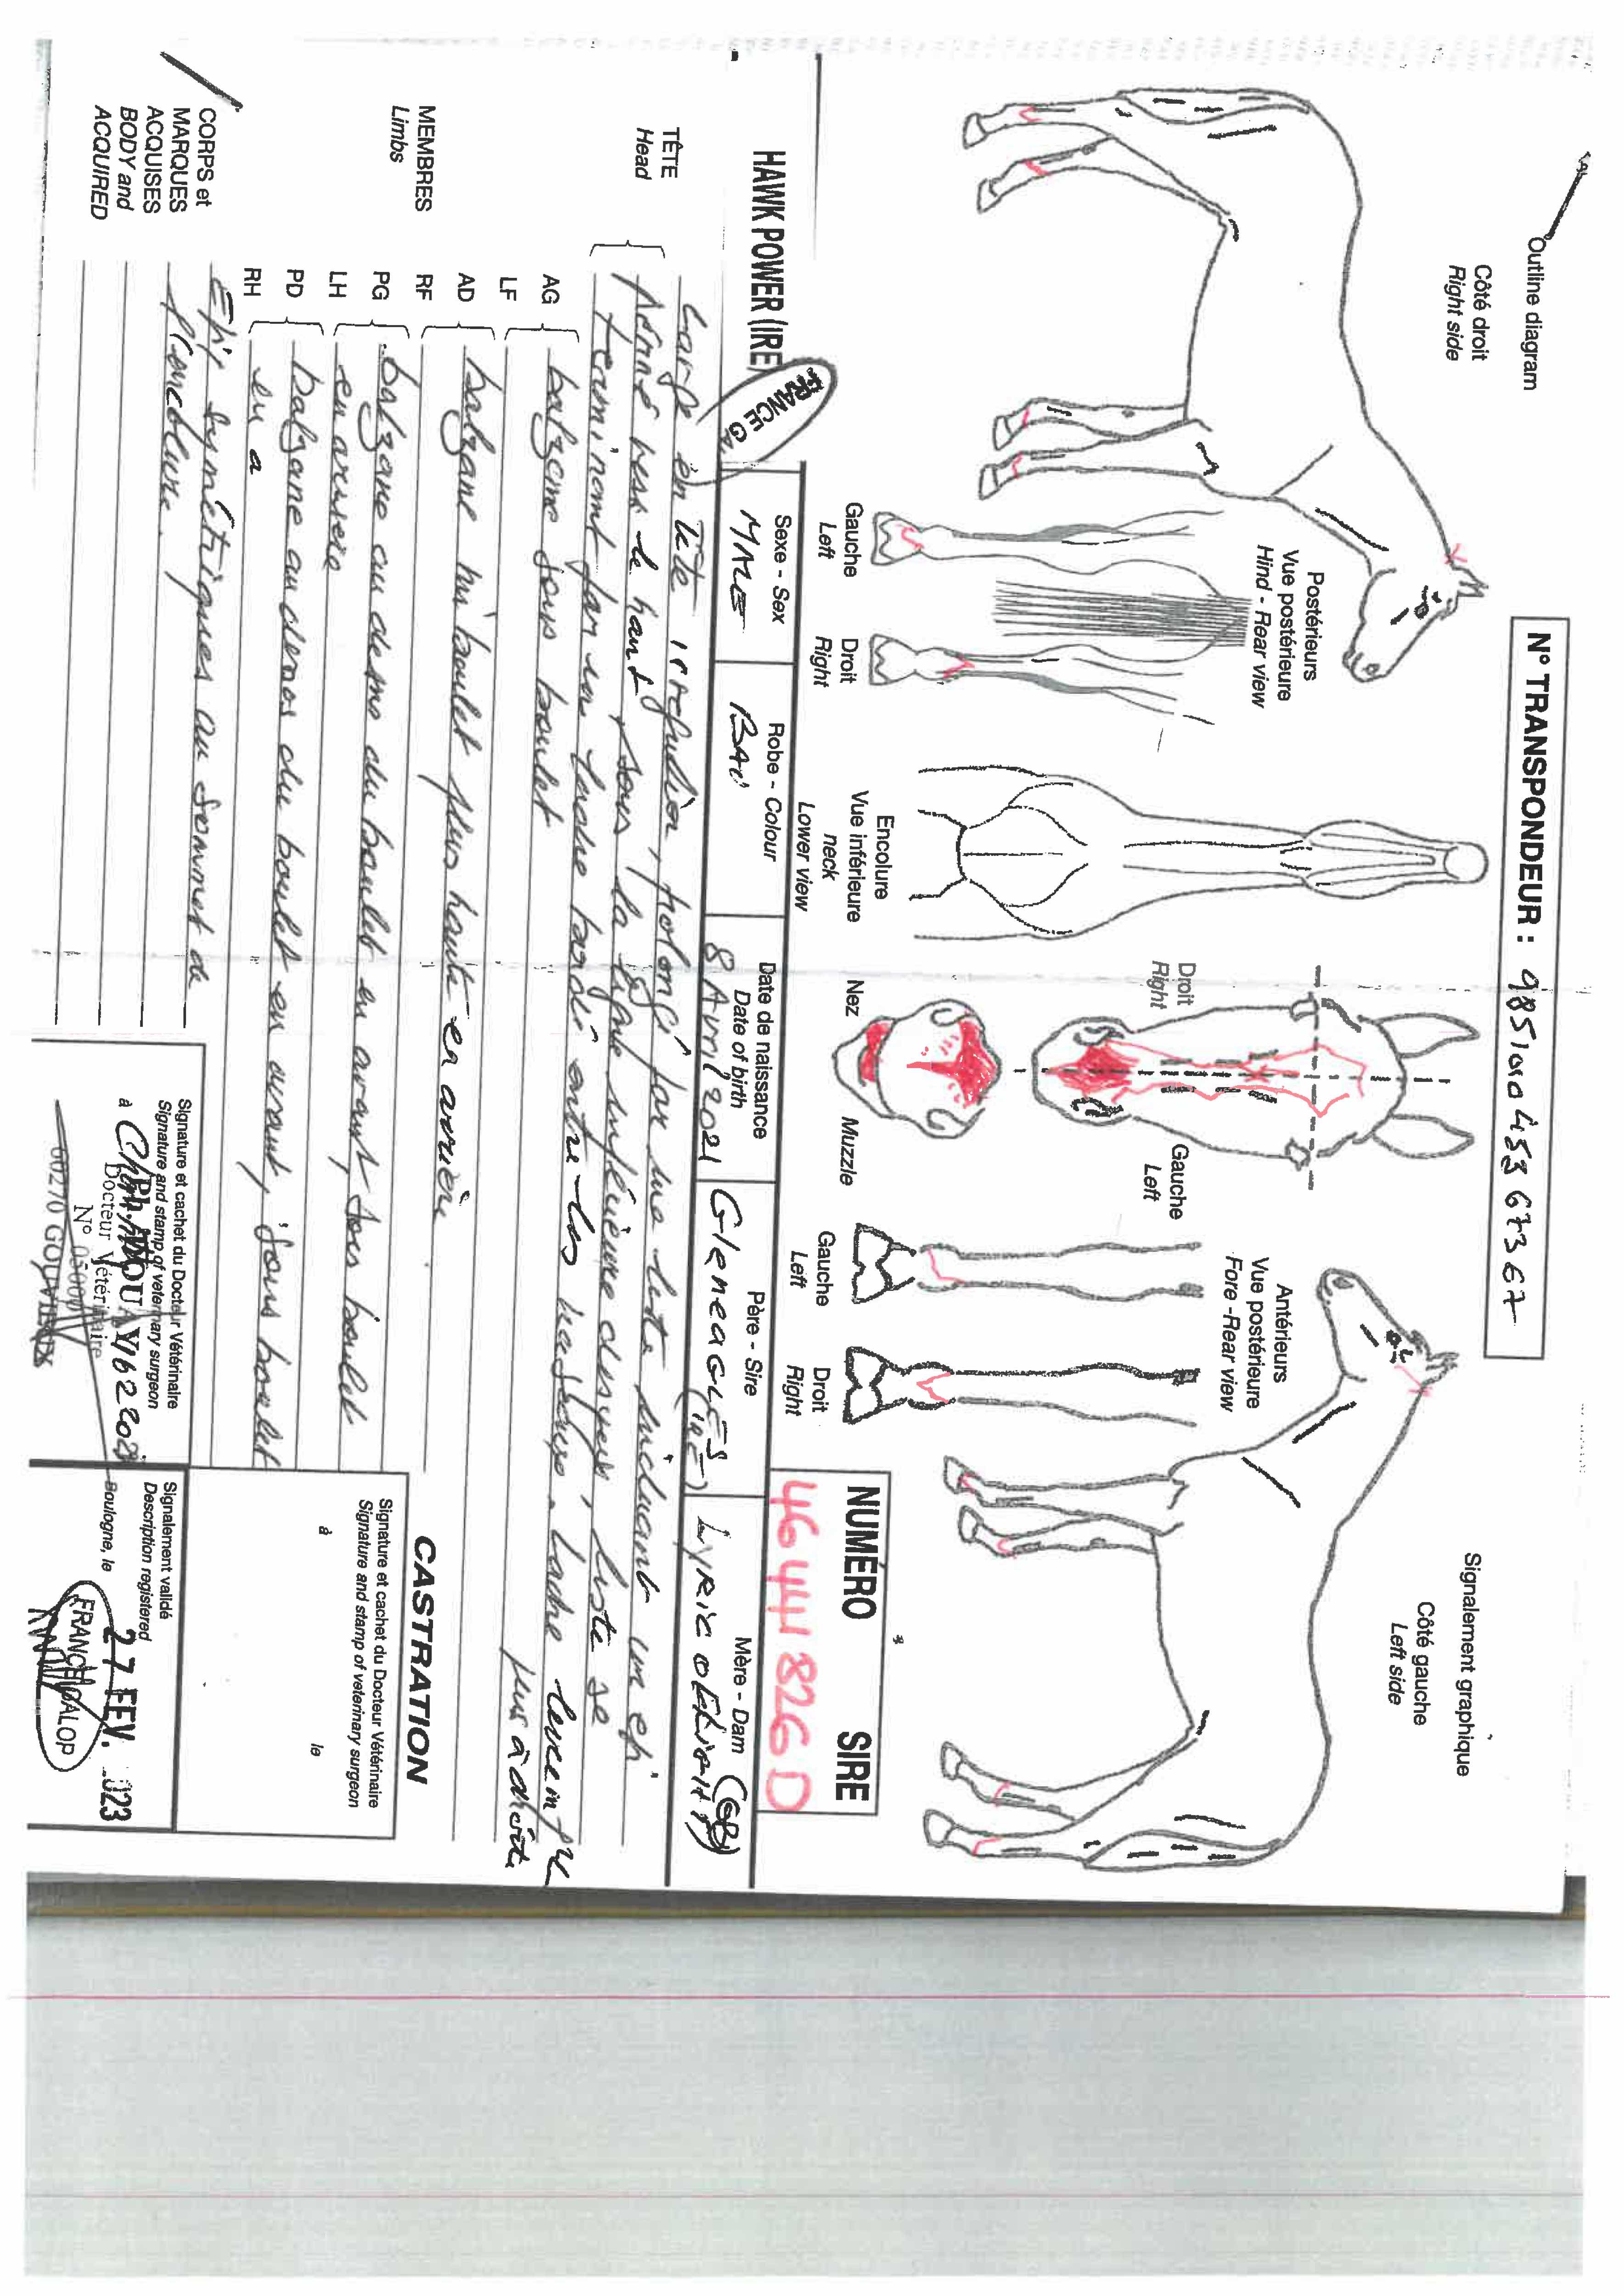 Outline diagram
Signalement graphique
N° TRANSPONDEUR : 985100
Côté droit
Right side
Côté gauche
Left side
Postérieurs
Vue postérieure
Hind - Rear view
Gauche
Left
Droit
Right
Encolure
Vue inférieure
neck
Lower view
Droit
Right
Gauche
Left
Nez
Muzzle
Antérieurs
Vue postérieure
Fore -Rear view
Gauche
Left
Droit
Right
NUMÉRO SIRE
4644826D
HAWK POWER (IRE)
FRANCE GA
Sexe - Sex
MALE
Robe - Colour
BAI
Date de naissance
Date of birth
8 Avril 2021
Père - Sire
GleneaGLES (IRE)
Mère - Dam
Lyric (GB)
TÊTE
Head
Large en tête irrégulière, prolongé par une liste incluant un épi
médian vers le haut, sous la ligne supérieure des yeux, liste se
terminant par un ladre bordé entre les naseaux. Ladre lèvre inf
plus à droite
MEMBRES
Limbs
AG
LF
balzane sous boulet
AD
RF
balzane mi boulet plus haute en arrière
PG
LH
balzane au dessus du boulet en avant, sous boulet
en arrière
PD
RH
balzane au dessus du boulet en avant, sous boulet
en a
CORPS et
MARQUES
ACQUISES
BODY and
ACQUIRED
Epis symétriques au sommet de
l'encolure.
CASTRATION
Signature et cachet du Docteur Vétérinaire
Signature and stamp of veterinary surgeon
à
le
Signature et cachet du Docteur Vétérinaire
Signature and stamp of veterinary surgeon
à
Docteur Vétérinaire
N°
60270 GOUVIEUX
Signalement validé
Description registered
Boulogne, le
27 FEV. 023
FRANCE GALOP